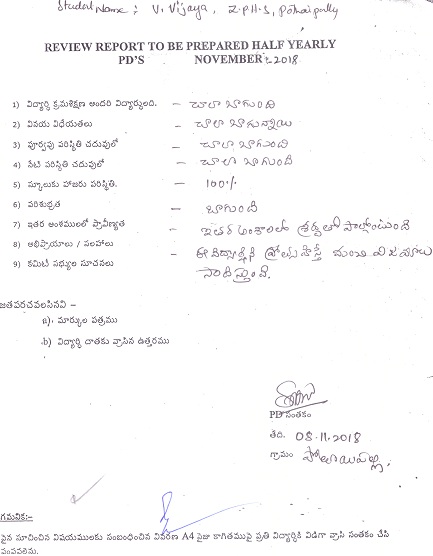 Student Name : V. Vijaya, Z.P.H.S, Pothaipally
REVIEW REPORT TO BE PREPARED HALF YEARLY
PD'S NOVEMBER - 2018
1) విద్యార్థి క్రమశిక్షణ అందరి విద్యార్థులది. - చాలా బాగుంది
2) వినయ విధేయతలు - చాలా బాగున్నాయి
3) పూర్వపు పరిస్థితి చదువులో - చాలా బాగుంది
4) నేటి పరిస్థితి చదువులో - చాలా బాగుంది
5) స్కూలుకు హాజరు పరిస్థితి. - 100%
6) పరిశుభ్రత - బాగుంది
7) ఇతర అంశములలో ప్రావీణ్యత - ఇతర అంశాలలో శ్రద్ధతో పాల్గొంటుంది
8) అభిప్రాయాలు / సలహాలు - ఈ విద్యార్థిని ప్రోత్సహిస్తే మంచి విజయాలు
9) కమిటీ సభ్యుల సూచనలు సాధిస్తుంది.
జతపరచవలసినవి -
a). మార్కుల పత్రము
b) విద్యార్థి దాతకు వ్రాసిన ఉత్తరము
PD సంతకం
తేది. 08.11.2018
గ్రామం
గమనిక:-
పైన సూచించిన విషయములకు సంబంధించిన వివరణ A4 సైజు కాగితముపై ప్రతి విద్యార్థికి విడిగా వ్రాసి సంతకం చేసి
పంపవలెను.